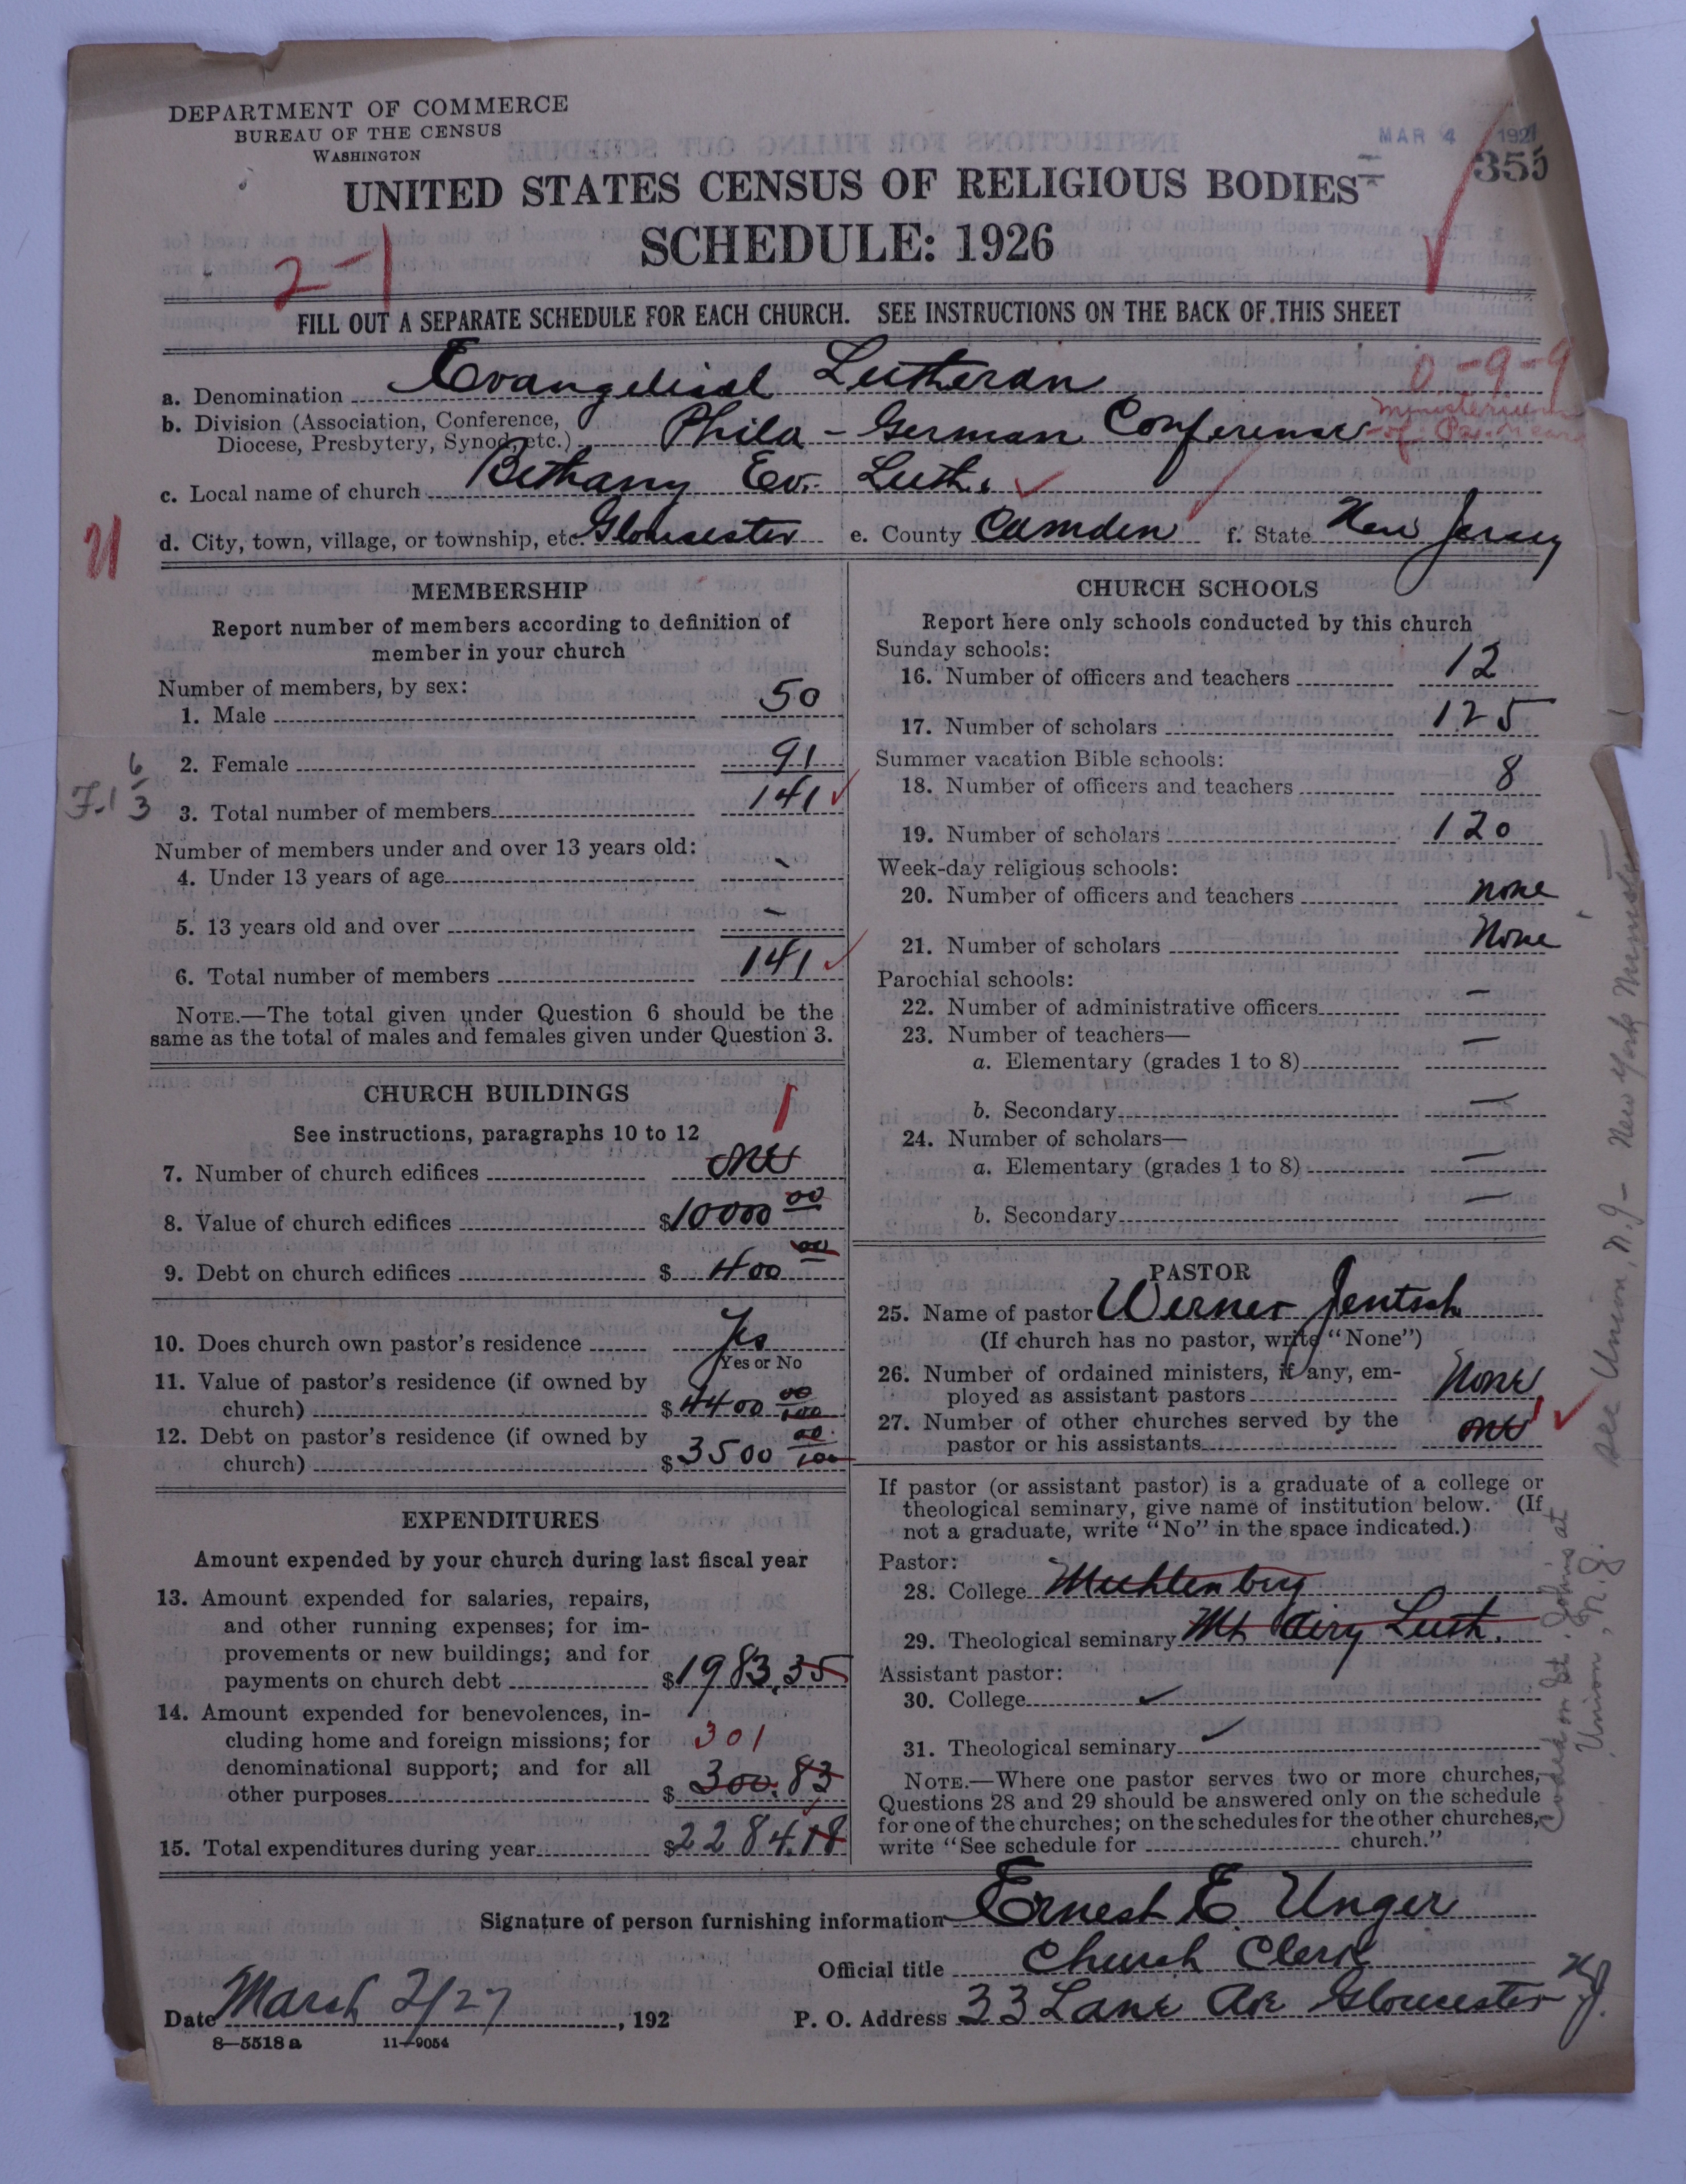 DEPARTMENT OF COMMERCE
BUREAU OF THE CENSUS
WASHINGTON
MAR 4 1927
355
UNITED STATES CENSUS OF RELIGIOUS BODIES
SCHEDULE: 1926
2-1
FILL OUT A SEPARATE SCHEDULE FOR EACH CHURCH. SEE INSTRUCTIONS ON THE BACK OF THIS SHEET
0-9-9
a. Denomination Evangelical Lutheran
b. Division (Association, Conference, Diocese, Presbytery, Synod, etc.) Phila - German Conference
Ministerium of
c. Local name of church Bethany Ev. Luth.
d. City, town, village, or township, etc. Gloucester e. County Camden f. State New Jersey
MEMBERSHIP
Report number of members according to definition of
member in your church
Number of members, by sex:
1. Male 50
2. Female 91
3. Total number of members 141
Number of members under and over 13 years old:
4. Under 13 years of age -
5. 13 years old and over -
6. Total number of members 141
NOTE.—The total given under Question 6 should be the
same as the total of males and females given under Question 3.
CHURCH BUILDINGS
See instructions, paragraphs 10 to 12
1
7. Number of church edifices one
8. Value of church edifices $10000 00
9. Debt on church edifices $ 400 00
10. Does church own pastor's residence Yes
Yes or No
11. Value of pastor's residence (if owned by
church) $4400 00/100
12. Debt on pastor's residence (if owned by
church) $3500 00/100
EXPENDITURES
Amount expended by your church during last fiscal year
13. Amount expended for salaries, repairs,
and other running expenses; for im-
provements or new buildings; and for
payments on church debt $1983.35
14. Amount expended for benevolences, in-
cluding home and foreign missions; for
301
denominational support; and for all
other purposes $ 300.83
15. Total expenditures during year $2284.18
CHURCH SCHOOLS
Report here only schools conducted by this church
Sunday schools:
16. Number of officers and teachers 12
17. Number of scholars 125
Summer vacation Bible schools:
18. Number of officers and teachers 8
19. Number of scholars 120
Week-day religious schools:
20. Number of officers and teachers none
21. Number of scholars None
Parochial schools:
22. Number of administrative officers -
23. Number of teachers— -
a. Elementary (grades 1 to 8)
b. Secondary -
24. Number of scholars—
a. Elementary (grades 1 to 8) -
b. Secondary -
PASTOR
25. Name of pastor Werner Jentsch
(If church has no pastor, write "None")
26. Number of ordained ministers, if any, em-
ployed as assistant pastors None
27. Number of other churches served by the
pastor or his assistants one 1
If pastor (or assistant pastor) is a graduate of a college or
theological seminary, give name of institution below. (If
not a graduate, write "No" in the space indicated.)
Pastor:
28. College Muhlenberg
29. Theological seminary Mt Airy Luth.
Assistant pastor:
30. College
31. Theological seminary
NOTE.—Where one pastor serves two or more churches,
Questions 28 and 29 should be answered only on the schedule
for one of the churches; on the schedules for the other churches,
write "See schedule for church."
See Union, N.J - New York Ministr
Coded on St. Johns at
Union, N.J.
Signature of person furnishing information Ernest E. Unger
Official title Church Clerk
Date March 2/27, 192 P. O. Address 33 Lane Ave Gloucester N.J.
8—5518 a 11—9054